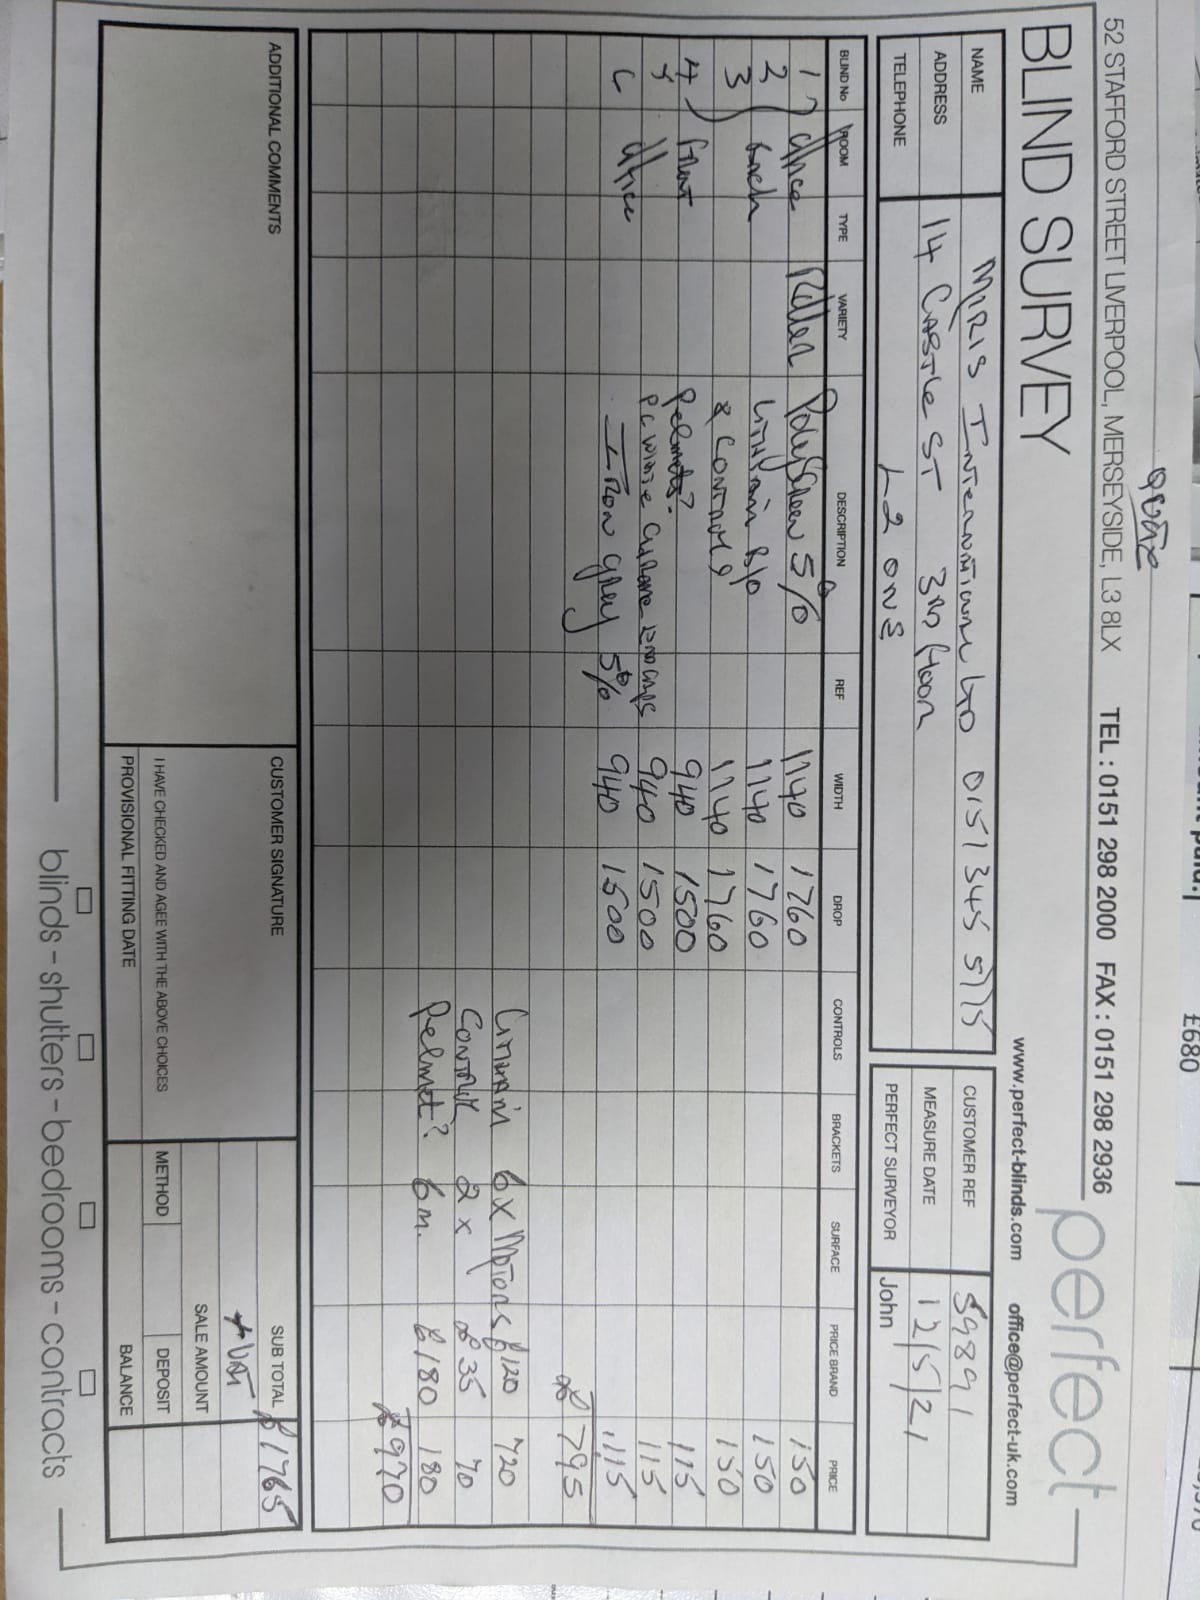 quote
52 STAFFORD STREET LIVERPOOL, MERSEYSIDE, L3 8LX TEL : 0151 298 2000 FAX : 0151 298 2936
www.perfect-blinds.com office@perfect-uk.com
BLIND SURVEY
perfect
NAME MIRIS International LTD 0151 345 5775
ADDRESS 14 CASTLE ST 3RD floor
TELEPHONE L2 0NE
CUSTOMER REF 59891
MEASURE DATE 12/5/21
PERFECT SURVEYOR John
BLIND No ROOM TYPE VARIETY DESCRIPTION REF WIDTH DROP CONTROLS BRACKETS SURFACE PRICE BRAND PRICE
1 office Roller Polyscreen 5% 1140 1760 150
2 back 1140 1760 150
3 & Controls 1140 1760 150
4 front Pelmets? 940 1500 115
5 940 1500 115
6 office Iron grey 5% 940 1500 115
£795
6 x Motors £120 720
2 x £35 70
Pelmet? 6m. £180 180
£970
ADDITIONAL COMMENTS
CUSTOMER SIGNATURE
I HAVE CHECKED AND AGEE WITH THE ABOVE CHOICES
PROVISIONAL FITTING DATE
SUB TOTAL £1765
+ VAT
SALE AMOUNT
METHOD DEPOSIT
BALANCE
blinds - shutters - bedrooms - contracts
£680